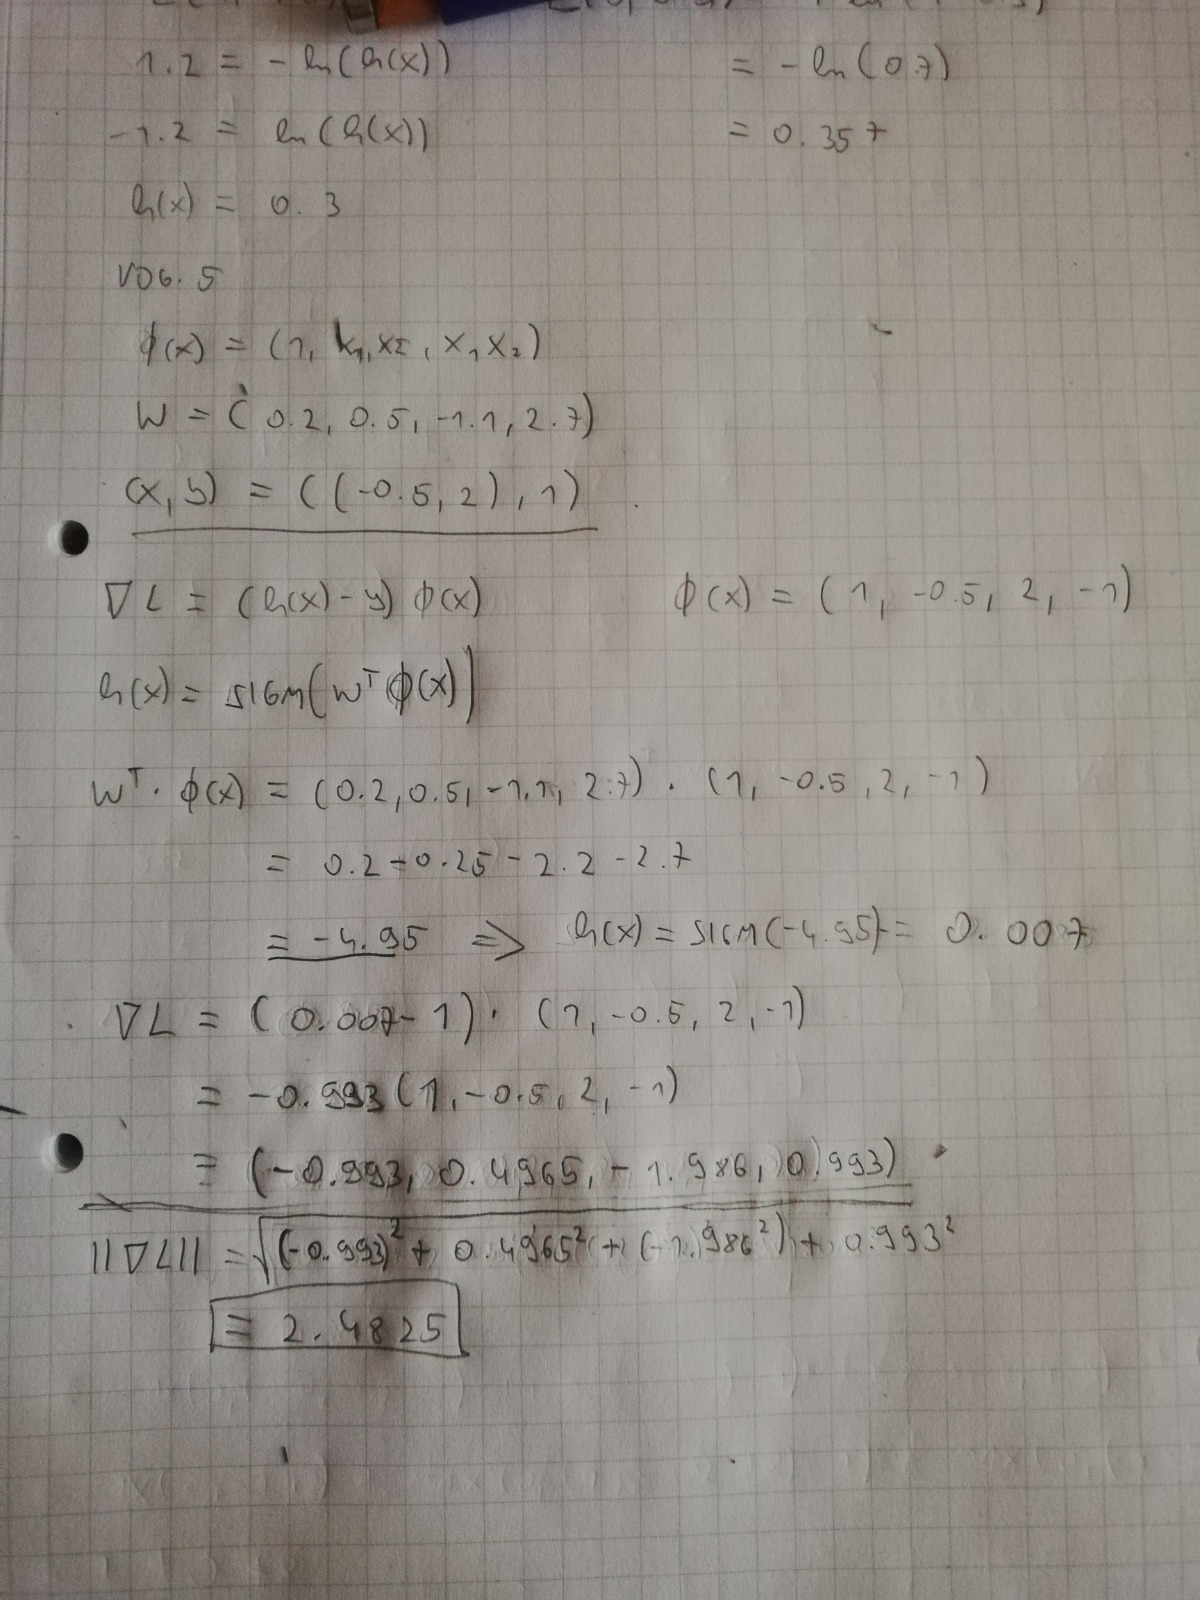 1.2 = -ln(h(x))
= -ln(0.7)
-1.2 = ln(h(x))
= 0.357
h(x) = 0.3
V06.5
ϕ(x) = (1, x₁, x₂, x₁x₂)
W = (0.2, 0.5, -1.1, 2.7)
(x, y) = ((-0.5, 2), 1)
∇L = (h(x) - y) ϕ(x)
ϕ(x) = (1, -0.5, 2, -1)
h(x) = SIGM(wᵀϕ(x))
wᵀ · ϕ(x) = (0.2, 0.5, -1.1, 2.7) · (1, -0.5, 2, -1)
= 0.2 - 0.25 - 2.2 - 2.7
= -4.95 => h(x) = SIGM(-4.95) = 0.007
∇L = (0.007 - 1) · (1, -0.5, 2, -1)
= -0.993 (1, -0.5, 2, -1)
= (-0.993, 0.4965, -1.986, 0.993)
||∇L|| = √(-0.993)² + 0.4965² + (-1.986²) + 0.993²
= 2.4825